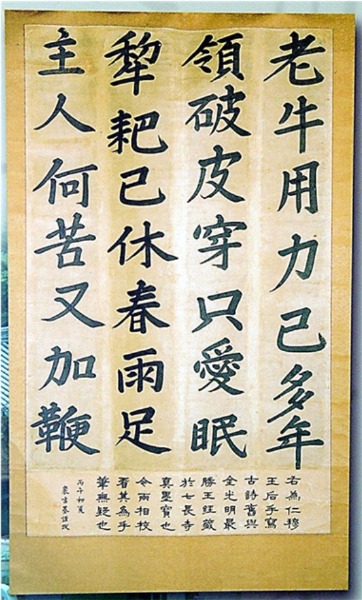 老牛用力已多年
領破皮穿只愛眠
犂耙已休春雨足
主人何苦又加鞭
右為仁穆
王后手寫
古詩舊與
金光明最
勝王經藏
於七長寺
真墨寶也
今兩相校
看其為手
筆無疑也
丙午初夏